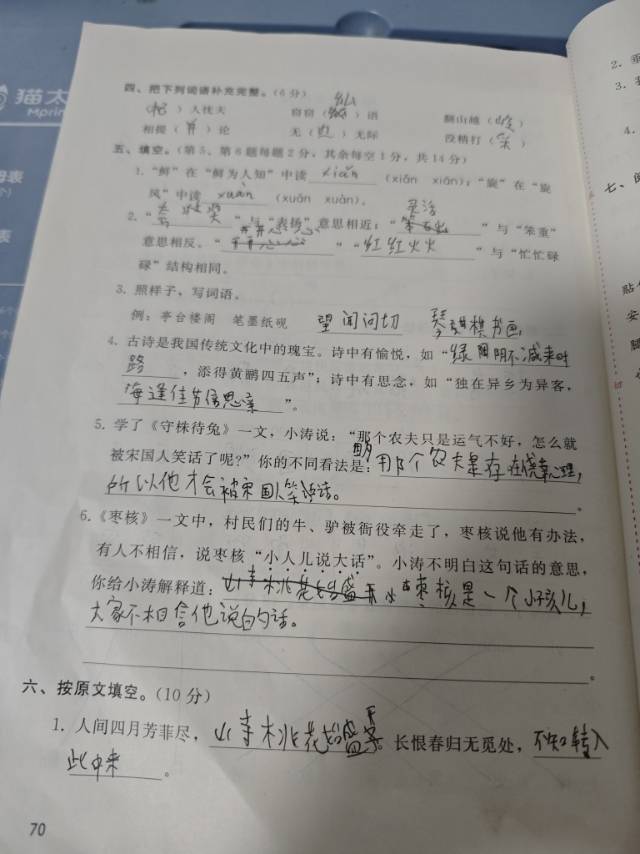 猫太
四、把下列词语补充完整。(6分)
(杞)人忧天 窃窃(私)语 翻山越(岭)
相提(并)论 无(边)无际 没精打()
五、填空。(第5、第6题每题2分,其余每空1分,共14分)
1.“鲜”在“鲜为人知”中读 xiǎn (xiān xiǎn);“旋”在“旋
风”中读 xuàn (xuán xuàn)。
2.“ ”与“表扬”意思相近;“灵活”与“笨重”
意思相反。“ ”“红红火火”与“忙忙碌
碌”结构相同。
3. 照样子,写词语。
例:亭台楼阁 笔墨纸砚 望闻问切 琴棋书画
4. 古诗是我国传统文化中的瑰宝。诗中有愉悦,如“绿阴不减来时
路,添得黄鹂四五声”;诗中有思念,如“独在异乡为异客,
每逢佳节倍思亲”。
5. 学了《守株待兔》一文,小涛说:“那个农夫只是运气不好,怎么就
被宋国人笑话了呢?”你的不同看法是:那个农夫是存在侥幸心理,
所以他才会被宋国人笑话。
6.《枣核》一文中,村民们的牛、驴被衙役牵走了,枣核说他有办法,
有人不相信,说枣核“小人儿说大话”。小涛不明白这句话的意思,
你给小涛解释道:枣核是一个小孩儿,
大家不相信他说的话。
。
六、按原文填空。(10分)
1. 人间四月芳菲尽,山寺桃花始盛开。长恨春归无觅处,不知转入
此中来。
70
2.
3.
4.
七、